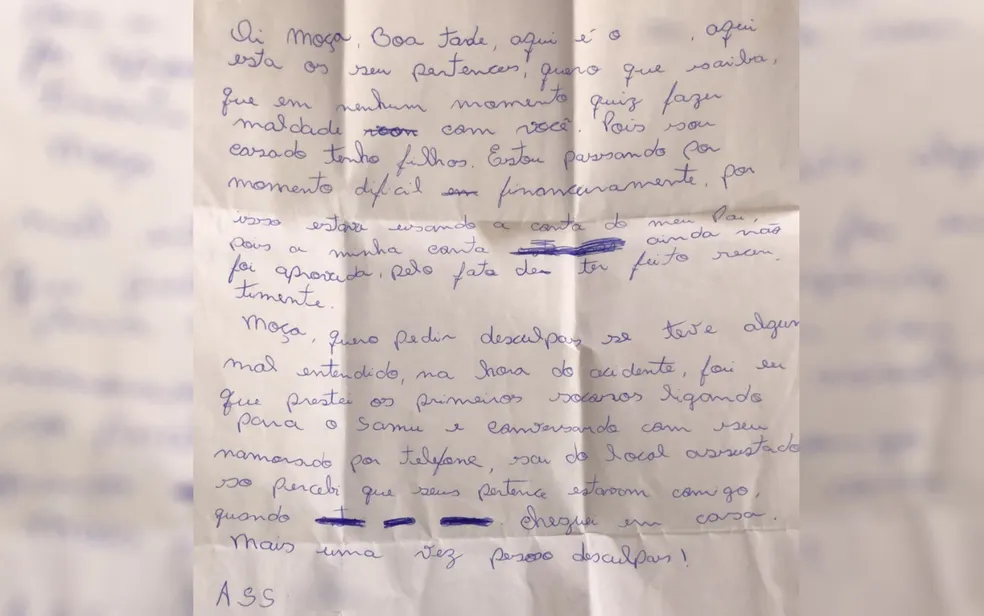 Oi Moça, Boa tarde, aqui é o , aqui
esta os seu pertences, quero que saiba,
que em nenhum momento quiz fazer
maldade com você. Pois sou
casado tenho filhos. Estou passando por
momento dificil financeiramente, por
isso estava usando a conta do meu Pai,
pois a minha conta ainda não
foi aprovada, pelo fato de ter feito recen
temente.
Moça, quero pedir desculpas se teve algum
mal entendido, na hora do acidente, foi eu
que prestei os primeiros socorros ligando
para o Samu e conversando com seu
namorado por telefone, sai do local assustado
so percebi que seus pertence estavam comigo,
quando cheguei em casa.
Mais uma vez desculpas!
ASS